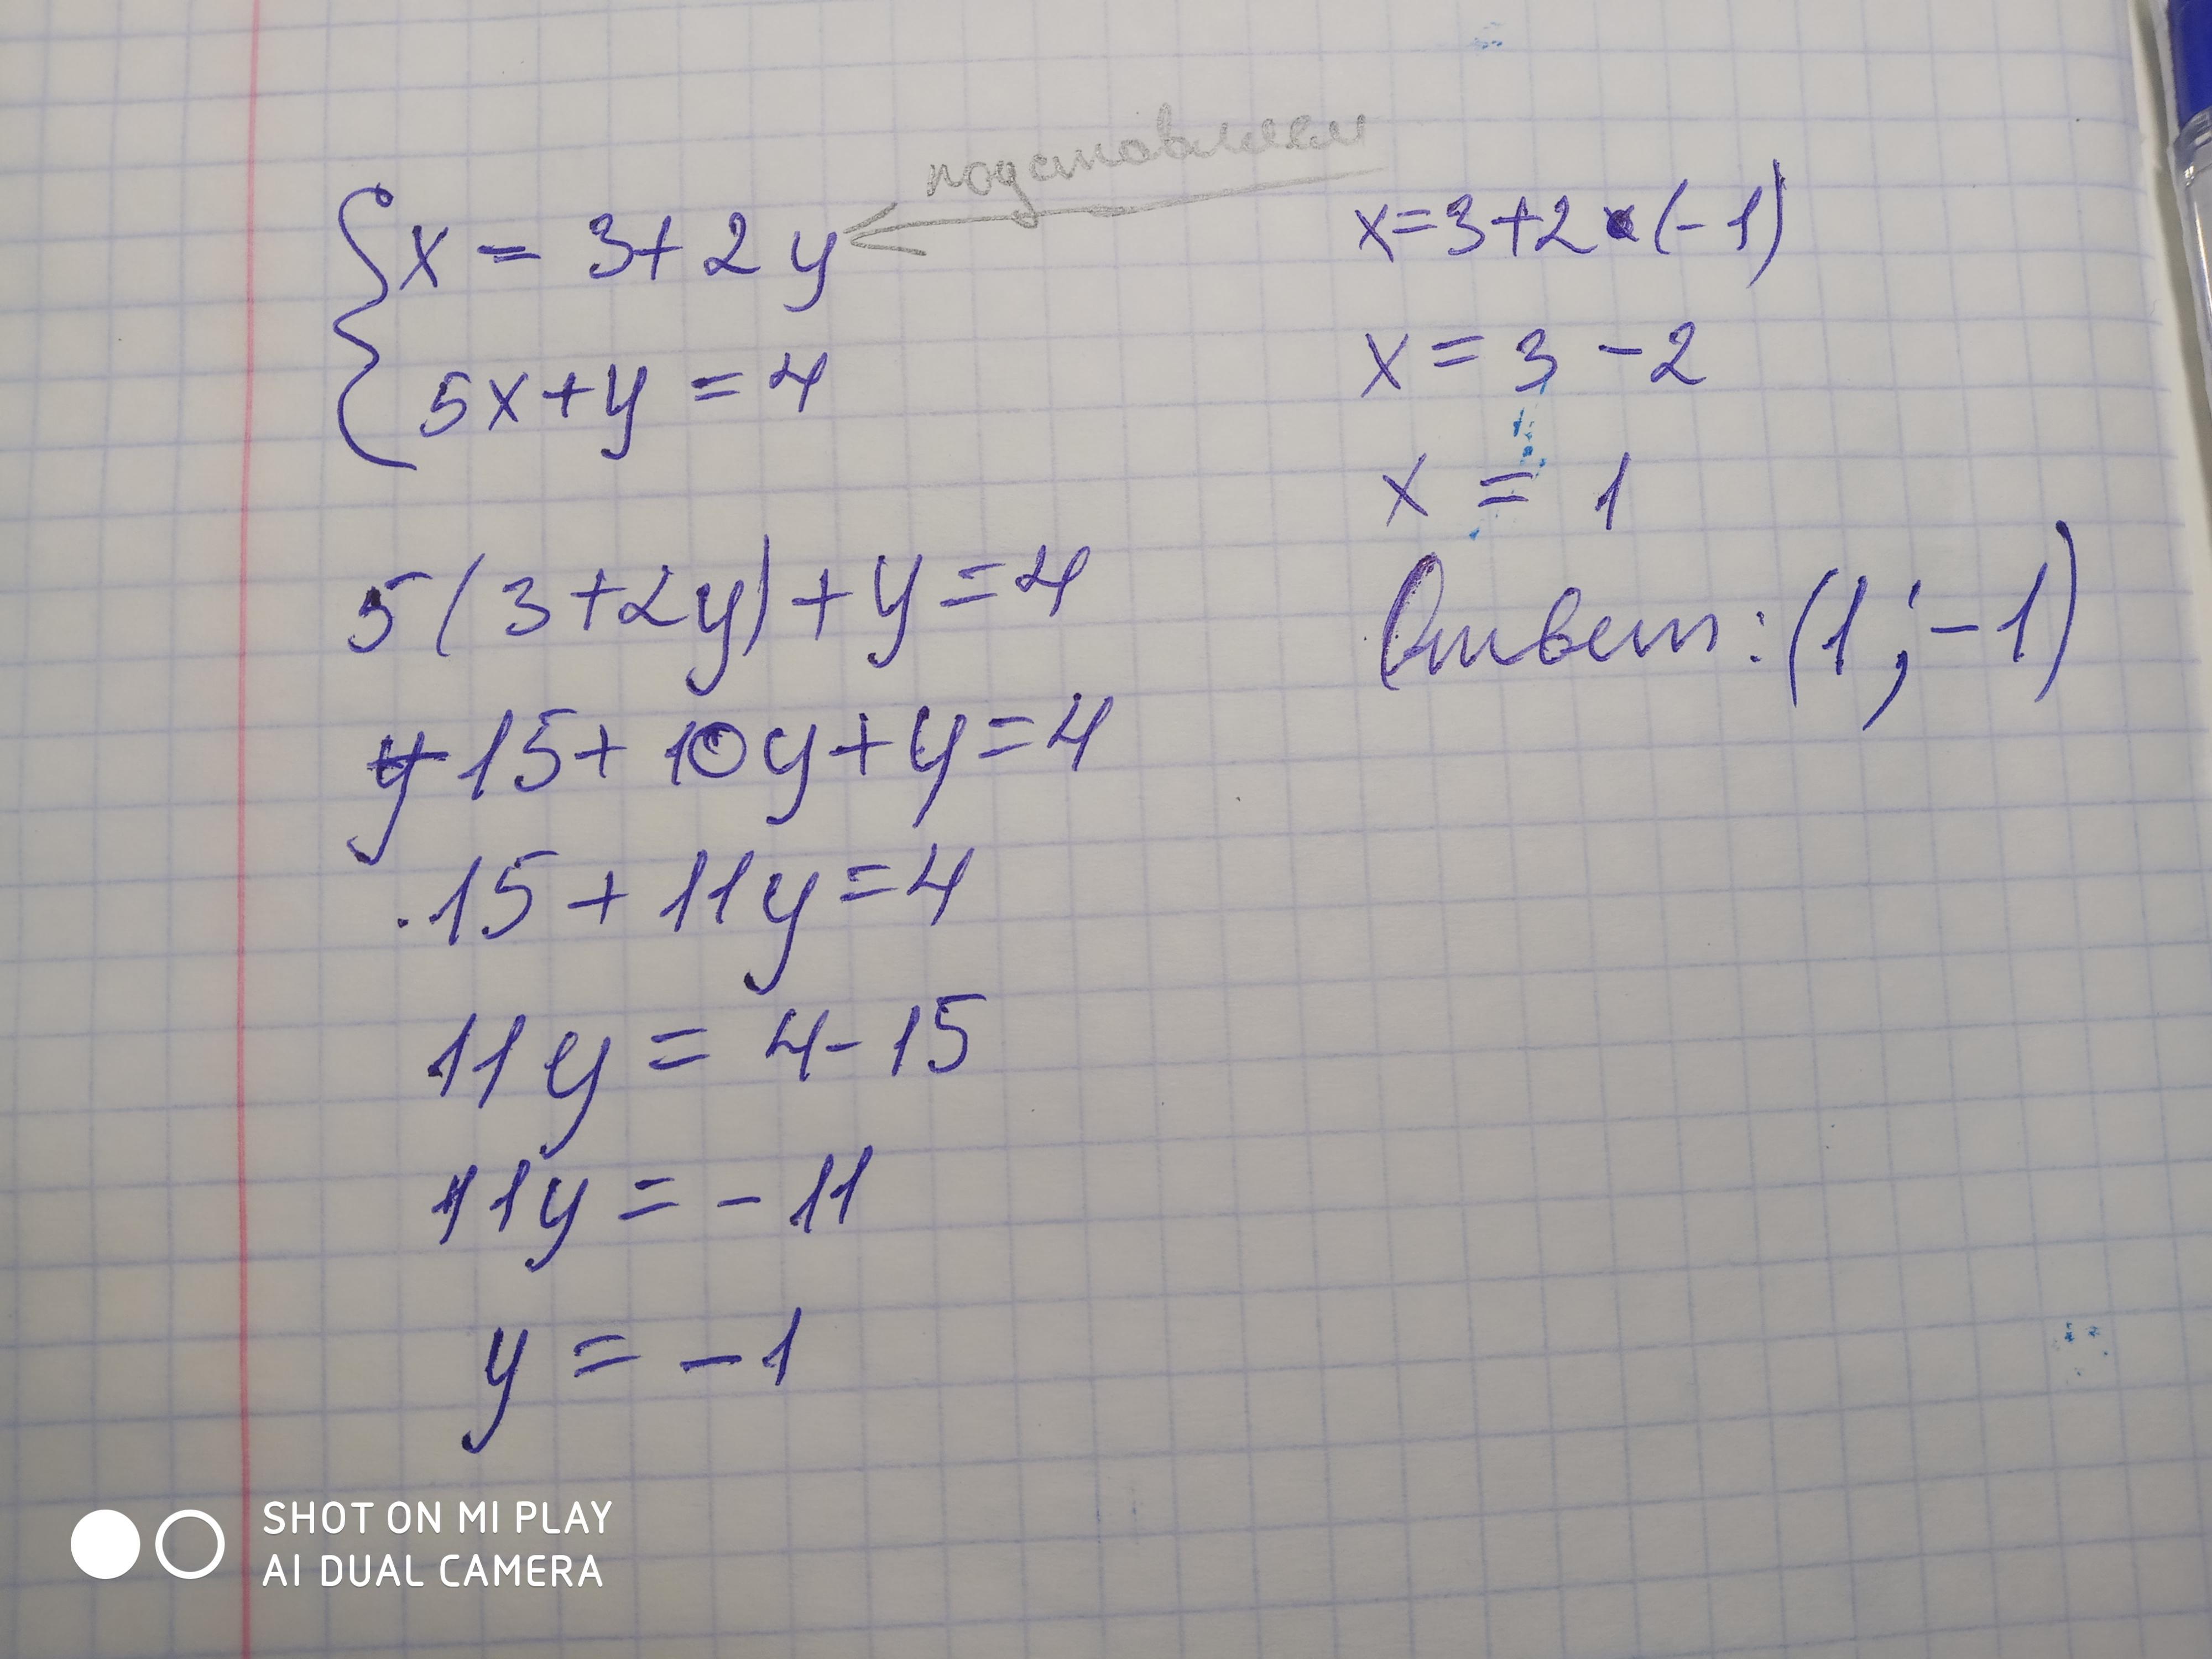 подставляем
x = 3 + 2y
5x + y = 4
5(3 + 2y) + y = 4
15 + 10y + y = 4
15 + 11y = 4
11y = 4 - 15
11y = - 11
y = - 1
x = 3 + 2 · (- 1)
x = 3 - 2
x = 1
Ответ: (1; - 1)
SHOT ON MI PLAY
AI DUAL CAMERA